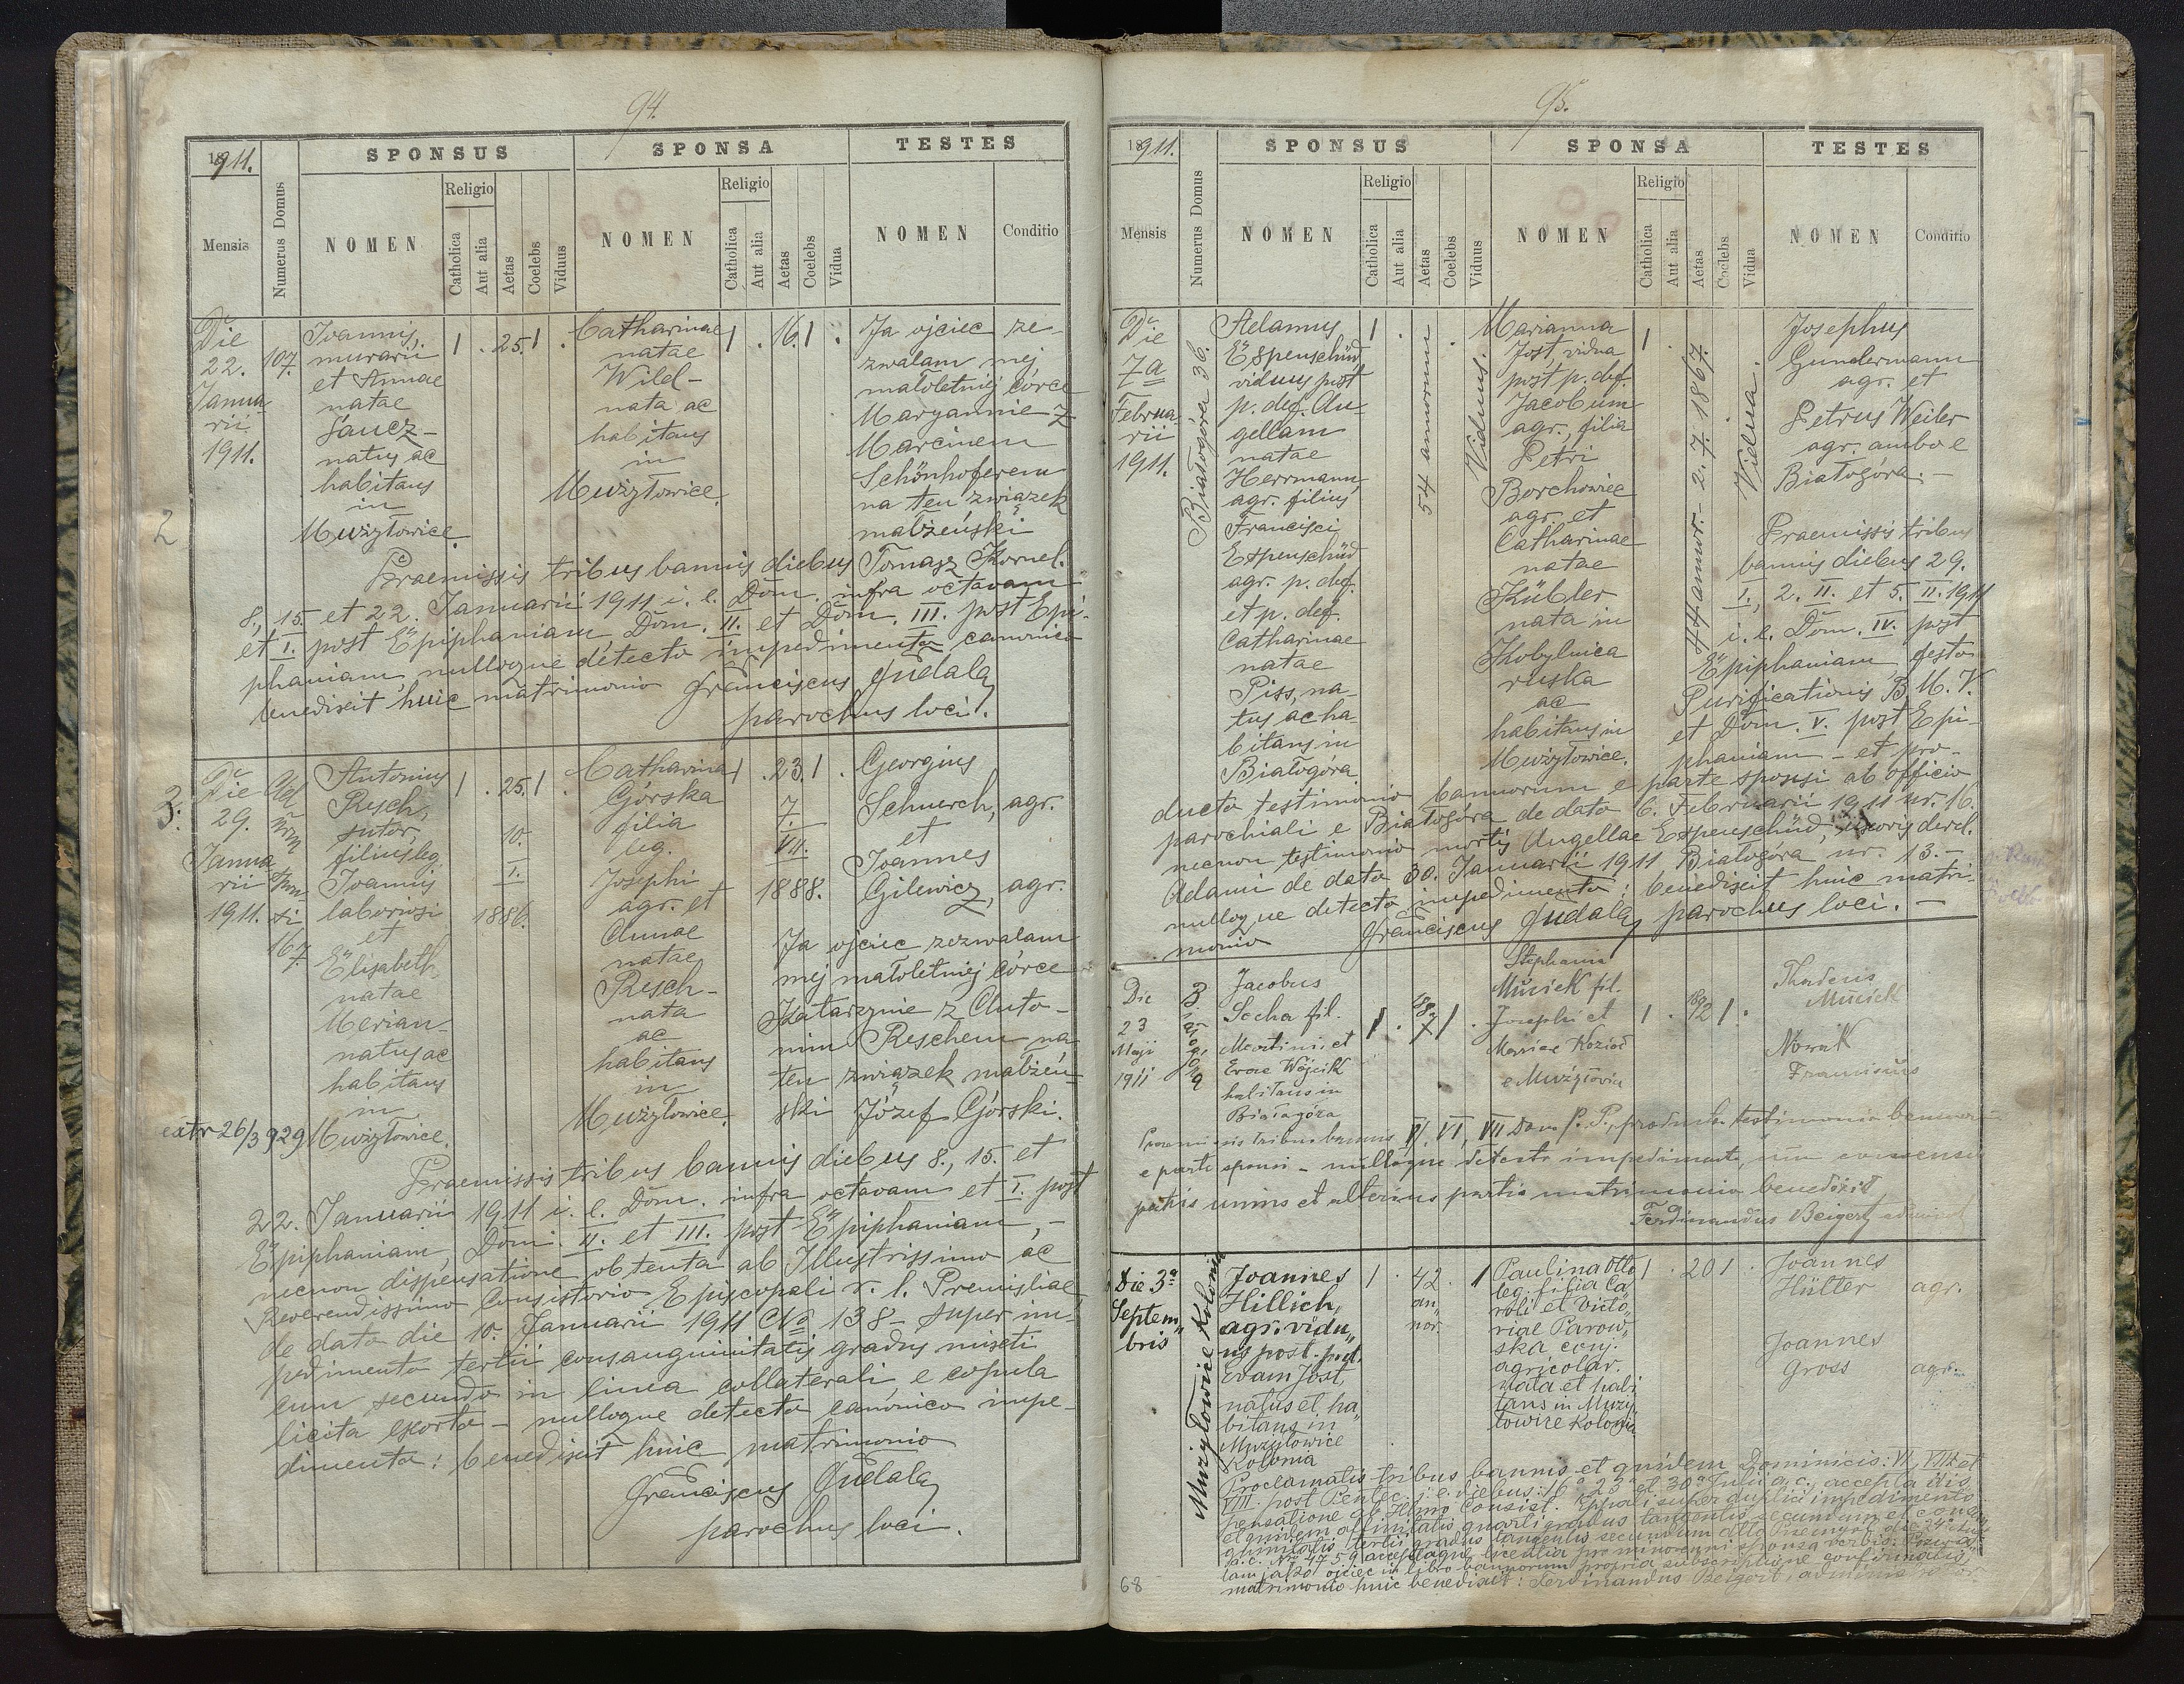 94.
1911.
SPONSUS
SPONSA
TESTES
Mensis
Numerus Domus
NOMEN
Religio
Catholica
Aut alia
Aetas
Coelebs
Viduus
NOMEN
Religio
Catholica
Aut alia
Aetas
Coelebs
Vidua
NOMEN
Conditio
Die
22.
Janua-
rii
1911.
107.
Joannis,
murarii
et Annae
natae
natus ac
habitans
in
Mużyłowice.
1 . 25. 1 .
Catharinae
natae
Wild –
nata ac
habitans
in
Mużyłowice.
1 . 16. 1 .
Ja ojciec ze-
zwalam mej
małoletniej córce
Maryannie z
Marcinem
Schönhoferem
na ten związek
małżeński
Tomasz Kornel.
2
Praemissis tribus bannis diebus
8., 15. et 22. Januarii 1911 i. e. Dom. infra octavam
et I. post Epiphaniam, Dom. II. et Dom. III. post Epi-
phaniam, nulloque detecto impedimento canonico
benedixit huic matrimonio Franciscus Gudala,
parochus loci.
3.
Die
29.
Janua
rii
1911.
167.
Antonius
Resch,
sutor,
filius leg.
Joannis
laboriosi
et
Elisabeth
natae
Merian –
natus ac
habitans
in
Mużyłowice.
1 . 25. 1 .
10.
I.
1886.
Catharina
Górska
filia
leg.
Josephi
agr. et
Annae
natae
Resch –
nata
ac
habitans
in
Mużyłowice.
1 . 23. 1 .
7.
VII.
1888.
Georgius
Schuerch, agr.
et
Joannes
Gilewicz, agr.
Ja ojciec zezwalam
mej małoletniej córce
Katarzynie z Anto-
nim Reschem na
ten związek małżeń-
ski Józef Górski.
extr 26/3 929
Praemissis tribus bannis diebus 8., 15. et
22. Januarii 1911 i. e. Dom. infra octavam et I. post
Epiphaniam, Dom. II. et III. post Epiphaniam, –
necnon dispensatione obtenta ab Illustrissimo ac
Reverendissimo Consistorio Episcopali r. l. Premisliae
de dato die 10. Januarii 1911 No 138 – super im-
pedimento tertii consanguinitatis gradus mixti
cum secundo in linea collaterali, e copula
licita exorto – nulloque detecto canonico impe-
dimento: benedixit huic matrimonio
Franciscus Gudala,
parochus loci.
95.
1911.
SPONSUS
SPONSA
TESTES
Mensis
Numerus Domus
NOMEN
Religio
Catholica
Aut alia
Aetas
Coelebs
Viduus
NOMEN
Religio
Catholica
Aut alia
Aetas
Coelebs
Vidua
NOMEN
Conditio
Die
7a
Februa-
rii
1911.
Białogóra 36.
Adamus
Espenschüd
viduus post
p. def. An-
gellam
natae
Herrmann,
agr. filius
Francisci
Espenschüd
agr. p. def.
et p. def.
Catharinae
natae
Piss, na-
tus ac ha-
bitans in
Białogóra.
1 .
54 annorum
Viduus.
Marianna
Jost, vidua
post p. def.
Jacobum
agr., filia
Petri
Borchowiec
agr. et
Catharinae
natae
Kübler
nata in
Kobylnica
ruska
ac
habitans in
Mużyłowice.
1 .
44 annor. – 2. 7. 1867.
Vidua.
Josephus
Gundermann
agr. et
Petrus Weiler
agr. ambo e
Białogóra. –
Praemissis tribus
bannis diebus 29.
I., 2. II. et 5. II. 1911
i. e. Dom. IV. post
Epiphaniam, festo
Purificationis B. M. V.
et Dom. V. post Epi-
phaniam – et pro-
ducto testimonio bannorum e parte sponsi ab officio
parochiali e Białogóra de dato 6. Februarii 1911 nr. 16.
necnon testimonio mortis Angellae Espenschüd, uxoris
Adami de dato 30. Januarii 1911 Białogóra nr. 13. –
nulloque detecto impedimento; benedixit huic matri-
monio Franciscus Gudala, parochus loci. –
Die
23
Maji
1911
Jacobus
Socha fil.
Martini et
Evae Wójcik
habitans in
Białagóra
1 . 1 .
Stephania
Musiek fil.
Josephi et
Mariae Kozioł
e Mużyłowice
1 . 1 .
Thadeus
Musiek
Nowak
Franciscus
Praemissis tribus bannis V, VI, VII Dom. p. P., producto testimonio bannorum
e parte sponsi – nulloque detecto impedimento, cum consensu
patris unius et alterius partis matrimonio benedixit
Ferdinandus Beigert
Die 3a
Septem„
bris
Mużyłowice Kolonia
Joannes
Hillich,
agr. vidu„
us post. p. d.
Evam Jost,
natus et ha„
bitans in
Mużyłowice
Kolonia
1 . 42 . 1
an„
nor.
Paulina Otto
leg. filia Ca„
roli et Victo„
riae Parow„
ska conj.
agricolar.
nata et habi
tans in Muży
łowice Kolonia
1 . 20 1 .
Joannes
Hütter agr.
Joannes
Gross agr.
Proclamatis tribus bannis et quidem Dominicis: VI, VII et
VIII. post Pentec. i. e. diebus: 16a 23a et 30a Julii a. c., accepta dis
pensatione ab Illmo Consist. Eppali super duplici impedimento
et quidem affinitatis quarti gradus tangentis secundum et consan
guinitatis tertii gradus tangentis secundum
a. c. Nro 4759 acceptaque licentia pro minorenni sponsa verbis:
lam jako ojciec in libro bannorum propria subscriptione confirmatis,
matrimonio huic benedixit: Ferdinandus Beigert, administrator
68